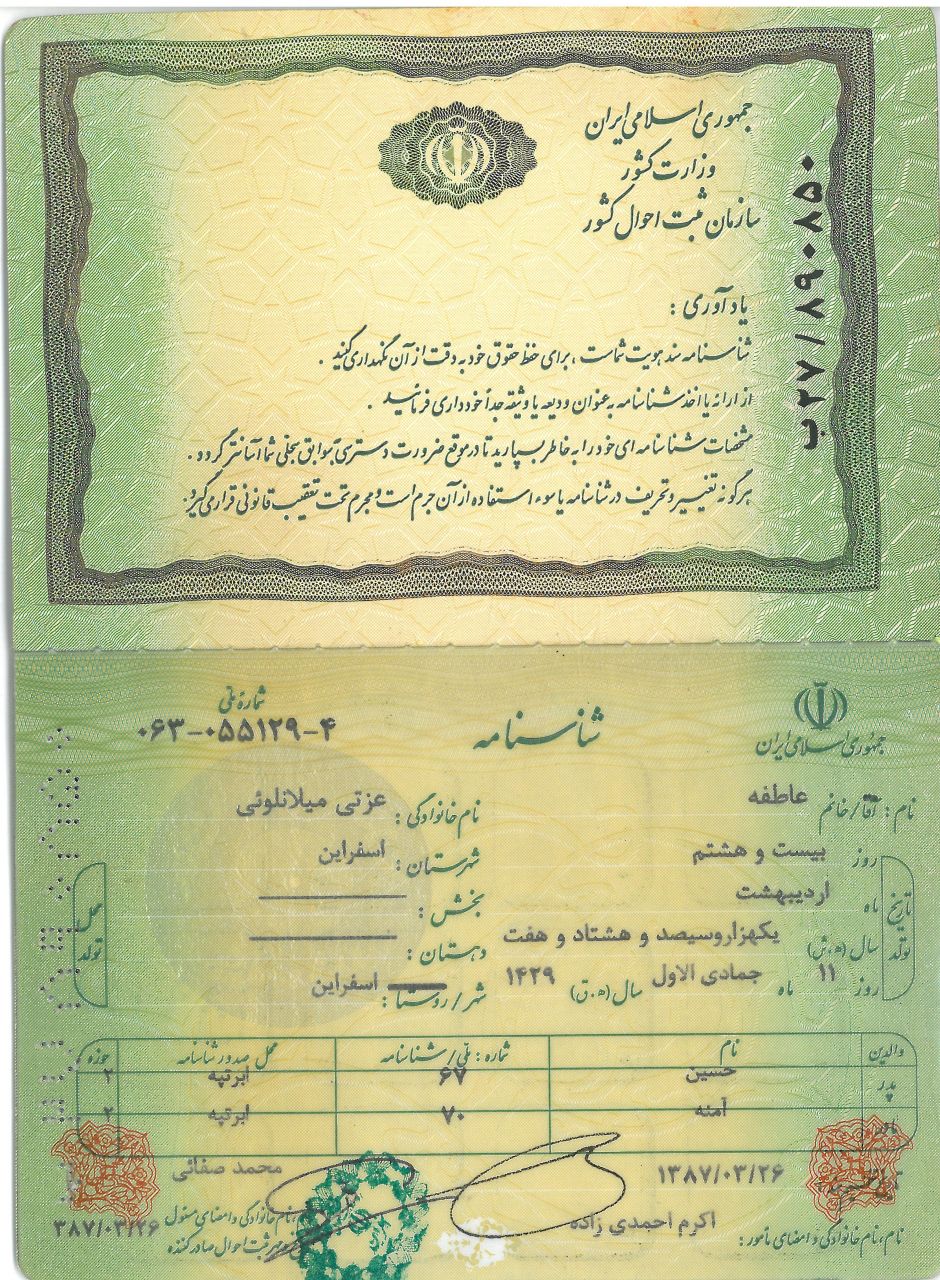 جمهوری اسلامی ایران
وزارت کشور
سازمان ثبت احوال کشور
ب۲۷/۸۹۰۸۵۰
یادآوری :
شناسنامه سند هویت شماست ، برای حفظ حقوق خود به دقت از آن نگهداری کنید .
از ارائه یا اخذ شناسنامه به عنوان ودیعه یا وثیقه جداً خودداری فرمائید .
مشخصات شناسنامه ای خود را به خاطر بسپارید تا در موقع ضرورت دسترسی به سوابق سجلی شما آسانتر گردد .
هرگونه تغییر و تحریف در شناسنامه یا سوء استفاده از آن جرم است و مجرم تحت تعقیب قانونی قرار می گیرد.
جمهوری اسلامی ایران
شناسنامه
شماره ملی
۰۶۳-۰۵۵۱۲۹-۴
نام : آقا/خانم عاطفه
نام خانوادگی : عزتی میلانلوئی
تاریخ تولد
روز بیست و هشتم
ماه اردیبهشت
سال (ه.ش) یکهزاروسیصد و هشتاد و هفت
روز ۱۱ ماه جمادی الاول سال (ه.ق) ۱۴۲۹
محل تولد
شهرستان : اسفراین
بخش :
دهستان :
شهر/روستا : اسفراین
والدین نام شماره : ملی/شناسنامه محل صدور شناسنامه حوزه
پدر حسین ۶۷ ابرتپه ۲
مادر آمنه ۷۰ ابرتپه ۲
۱۳۸۷/۰۳/۲۶ محمد صفائی
نام، نام خانوادگی و امضای مامور : اکرم احمدی زاده
نام خانوادگی و امضای مسئول
مهر ثبت احوال صادر کننده
۳۸۷/۰۳/۲۶